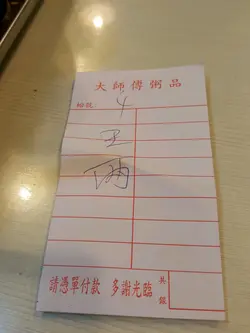 大師傅粥品
枱號 4
請憑單付款 多謝光臨 共銀